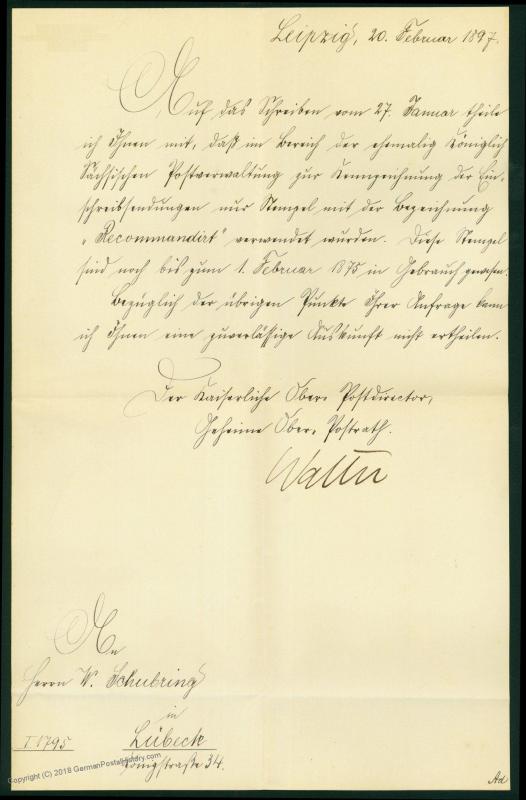 Leipzig, 20. Februar 1897.
Auf das Schreiben vom 27. Januar theile
ich Ihnen mit, daß im Bereich der ehemalig Königlich
Sächsischen Postverwaltung zur Kennzeichnung der Ein-
schreibsendungen nur Stempel mit der Bezeichnung
„Recommandirt" verwendet wurden. Diese Stempel
sind noch bis zum 1. Februar 1875 in Gebrauch gewesen.
Bezüglich der übrigen Punkte Ihrer Anfrage kann
ich Ihnen eine zuverlässige Auskunft nicht ertheilen.
Der Kaiserliche Ober-Postdirector,
Geheime Ober-Postrath.
Walter
An
Herrn W. Schubring
in
I.1795 Lübeck
Königstraße 34.
Copyright (C) 2018 GermanPostalHistory.com
Ad